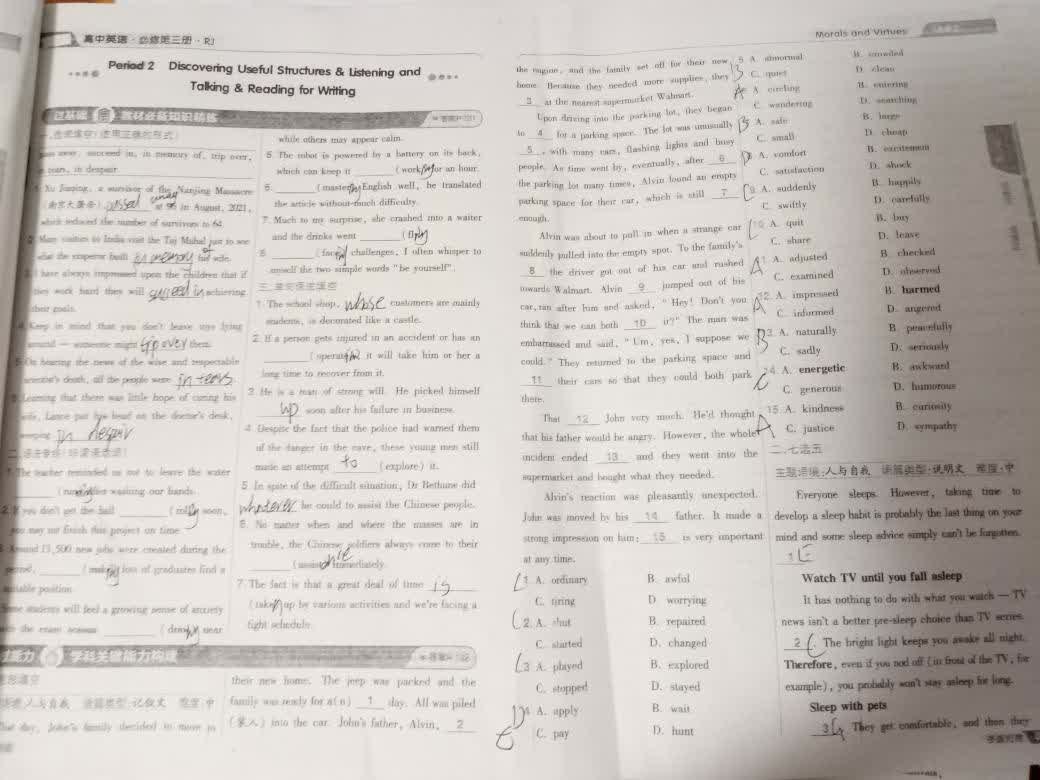 高中英语·必修第三册·RJ
Period 2 Discovering Useful Structures & Listening and
Talking & Reading for Writing
过基础 教材必备知识精练
pass away, succeed in, in memory of, trip over,
in tears, in despair
1. Xu Jiaqing, a survivor of the Nanjing Massacre
(南京大屠杀), passed away at in August, 2021,
which reduced the number of survivors to 64.
2. Many visitors to India visit the Taj Mahal just to see
what the emperor built in memory of his wife.
3. I have always impressed upon the children that if
they work hard they will succeed in achieving
their goals.
4. Keep in mind that you don't leave toys lying
around — someone might trip over them.
5. On hearing the news of the wise and respectable
scientist's death, all the people were in tears.
6. Learning that there was little hope of curing his
wife, Lance put his head on the doctor's desk,
weeping in despair
1. The teacher reminded us not to leave the water
after washing our hands.
2. If you don't get the ball soon,
you may not finish this project on time.
3. Around 13,500 new jobs were created during the
period, loss of graduates find a
suitable position.
4. Some students will feel a growing sense of anxiety
with the exam season near
while others may appear calm.
5. The robot is powered by a battery on its back,
which can keep it (work) for an hour.
6. (master) English well, he translated
the article without much difficulty.
7. Much to my surprise, she crashed into a waiter
and the drinks went (fly)
8. (face) challenges, I often whisper to
myself the two simple words "be yourself".
三、单句语法填空
1. The school shop, whose customers are mainly
students, is decorated like a castle.
2. If a person gets injured in an accident or has an
(operate), it will take him or her a
long time to recover from it.
3. He is a man of strong will. He picked himself
up soon after his failure in business.
4. Despite the fact that the police had warned them
of the danger in the cave, these young men still
made an attempt to (explore) it.
5. In spite of the difficult situation, Dr Bethune did
whatever he could to assist the Chinese people.
6. No matter when and where the masses are in
trouble, the Chinese soldiers always come to their
immediately.
7. The fact is that a great deal of time is
(take) up by various activities and we're facing a
tight schedule.
过能力 学科关键能力构建
语境:人与自我 语篇类型:记叙文 难度:中
One day, John's family decided to move to
their new home. The jeep was packed and the
family was ready for a(n) 1 day. All was piled
(装入) into the car. John's father, Alvin, 2
Morals and Virtues
the engine, and the family set off for their new
home. Because they needed more supplies, they
3 at the nearest supermarket Walmart.
Upon driving into the parking lot, they began
to 4 for a parking space. The lot was unusually
5, with many cars, flashing lights and busy
people. As time went by, eventually, after 6
the parking lot many times, Alvin found an empty
parking space for their car, which is still 7
enough.
Alvin was about to pull in when a strange car
suddenly pulled into the empty spot. To the family's
8 the driver got out of his car and rushed
towards Walmart. Alvin 9 jumped out of his
car, ran after him and asked, "Hey! Don't you
think that we can both 10 it?" The man was
embarrassed and said, "Um, yes, I suppose we
could." They returned to the parking space and
11 their cars so that they could both park
there.
That 12 John very much. He'd thought
that his father would be angry. However, the whole
incident ended 13 and they went into the
supermarket and bought what they needed.
Alvin's reaction was pleasantly unexpected.
John was moved by his 14 father. It made a
strong impression on him; 15 is very important
at any time.
1. A. ordinary B. awful
C. tiring D. worrying
2. A. shut B. repaired
C. started D. changed
3. A. played B. explored
C. stopped D. stayed
4. A. apply B. wait
C. pay D. hunt
5. A. abnormal B. crowded
C. quiet D. clean
6. A. circling B. entering
C. wandering D. searching
7. A. safe B. large
C. small D. cheap
8. A. comfort B. excitement
C. satisfaction D. shock
9. A. suddenly B. happily
C. swiftly D. carefully
10. A. quit B. buy
C. share D. leave
11. A. adjusted B. checked
C. examined D. observed
12. A. impressed B. harmed
C. informed D. angered
13. A. naturally B. peacefully
C. sadly D. seriously
14. A. energetic B. awkward
C. generous D. humorous
15. A. kindness B. curiosity
C. justice D. sympathy
二、七选五
主题语境:人与自我 语篇类型:说明文 难度:中
Everyone sleeps. However, taking time to
develop a sleep habit is probably the last thing on your
mind and some sleep advice simply can't be forgotten.
1 E
Watch TV until you fall asleep
It has nothing to do with what you watch — TV
news isn't a better pre-sleep choice than TV series.
2 The bright light keeps you awake all night.
Therefore, even if you nod off (in front of the TV, for
example), you probably won't stay asleep for long.
Sleep with pets
3 G They get comfortable, and then they